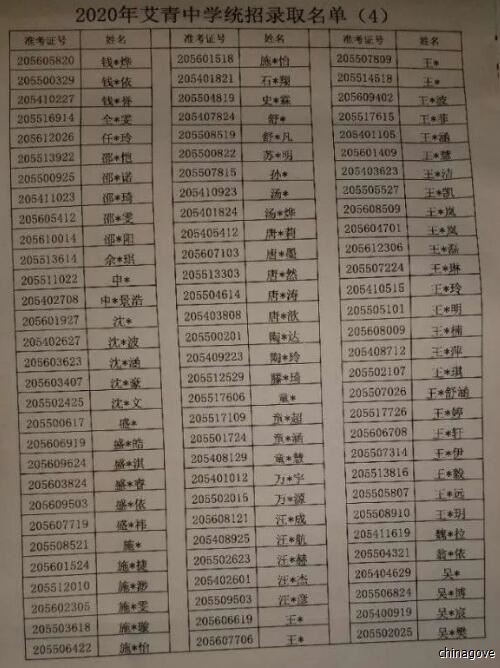 2020年艾青中学统招录取名单（4）
准考证号 姓名 准考证号 姓名 准考证号 姓名
205605820 钱*烨 205601518 施*怡 205507809 王*
205500329 钱*依 205401821 石*翔 205514518 王*
205410227 钱*誉 205504819 史*霖 205609402 王*波
205516914 全*雯 205407824 舒* 205517615 王*菲
205612026 任*玲 205508519 舒*凡 205401105 王*涵
205513922 邵*恺 205500822 苏*明 205601409 王*慧
205500925 邵*诺 205507815 孙* 205403623 王*洁
205411023 邵*琦 205410923 汤* 205505527 王*凯
205605412 邵*雯 205401824 汤*烨 205608509 王*岚
205610014 邵*阳 205405412 唐*莉 205604701 王*岚
205513614 佘*琪 205607103 唐*墨 205612306 王*磊
205511022 申* 205513303 唐*然 205507224 王*琳
205402708 申*景浩 205504614 唐*涛 205410515 王*玲
205601927 沈* 205403808 唐*歆 205505101 王*明
205402627 沈*波 205500201 陶*达 205608009 王*楠
205603623 沈*涵 205409223 陶*玲 205408712 王*萍
205603407 沈*豪 205512529 滕*琦 205502107 王*琪
205502425 沈*文 205517606 童* 205507026 王*舒涵
205500617 盛* 205517109 童*超 205517726 王*婷
205606919 盛*皓 205501724 童*涵 205606708 王*轩
205609624 盛*淇 205408129 童*慧 205507314 王*伊
205603824 盛*睿 205401012 万*宇 205513816 王*毅
205609503 盛*依 205502015 万*源 205505807 王*远
205607719 盛*祎 205608121 汪*成 205508910 王*玥
205508521 施* 205408925 汪*航 205411619 魏*拉
205601524 施*捷 205502623 汪*赫 205504321 翁*依
205512010 施*渺 205402601 汪*杰 205404629 吴*
205602305 施*雯 205509503 汪*彦 205506824 吴*博
205503618 施*璇 205606619 王* 205400919 吴*宸
205506422 施*怡 205607706 王* 205502025 吴*樊
chinagove